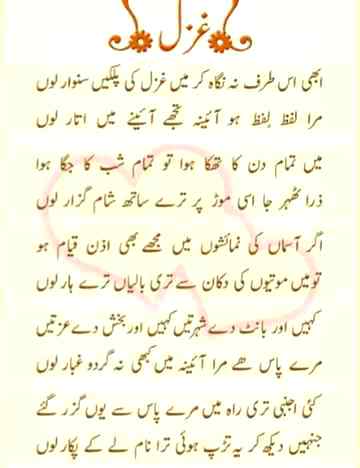 غزل
ابھی اس طرف نہ نگاہ کر میں غزل کی پلکیں سنوار لوں
مرا لفظ لفظ ہو آئینہ تجھے آئینے میں اتار لوں
میں تمام دن کا تھکا ہوا تو تمام شب کا جگا ہوا
ذرا ٹھہر جا اسی موڑ پر ترے ساتھ شام گزار لوں
اگر آسماں کی نمائشوں میں مجھے بھی اذن قیام ہو
تو میں موتیوں کی دکان سے تری بالیاں ترے ہار لوں
کہیں اور بانٹ دے شہرتیں کہیں اور بخش دے عزتیں
مرے پاس ھے مرا آئینہ میں کبھی نہ گرد و غبار لوں
کئی اجنبی تری راہ میں مرے پاس سے یوں گزر گئے
جنہیں دیکھ کر یہ تڑپ ہوئی ترا نام لے کے پکار لوں